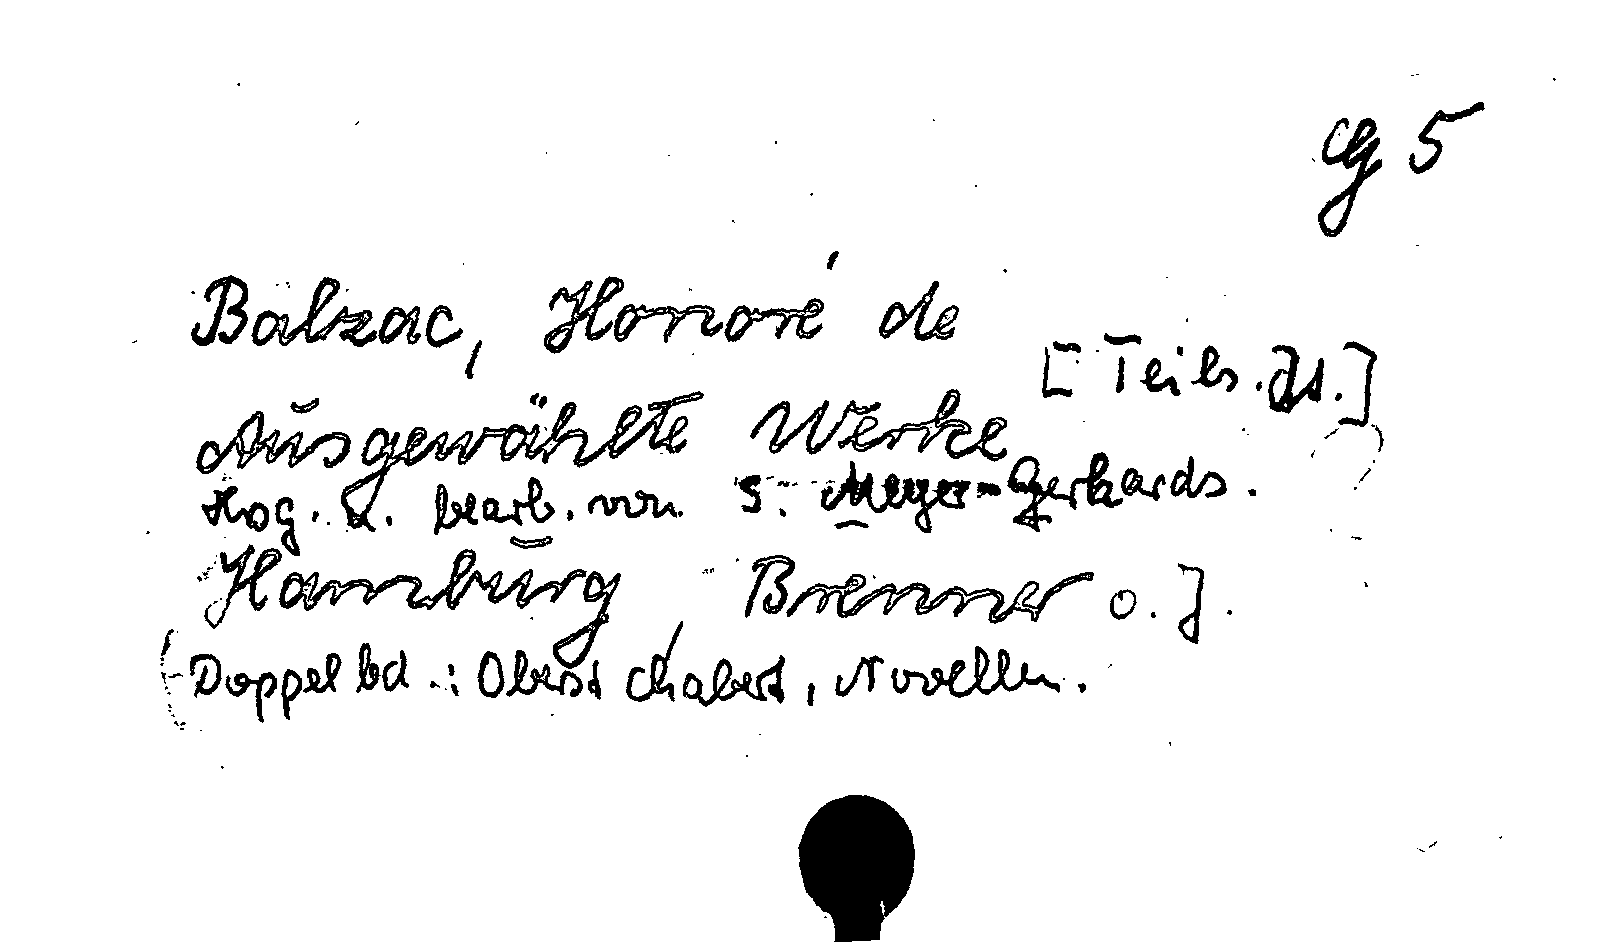 Cg 5
Balzac, Honoré de
[Teils.]
Ausgewählte Werke
Hsg. u. bearb. von S. Meyer-Gerhards.
Hamburg, Brenner o. J.
(Doppelbd.: Oberst Chabert, Novellen.